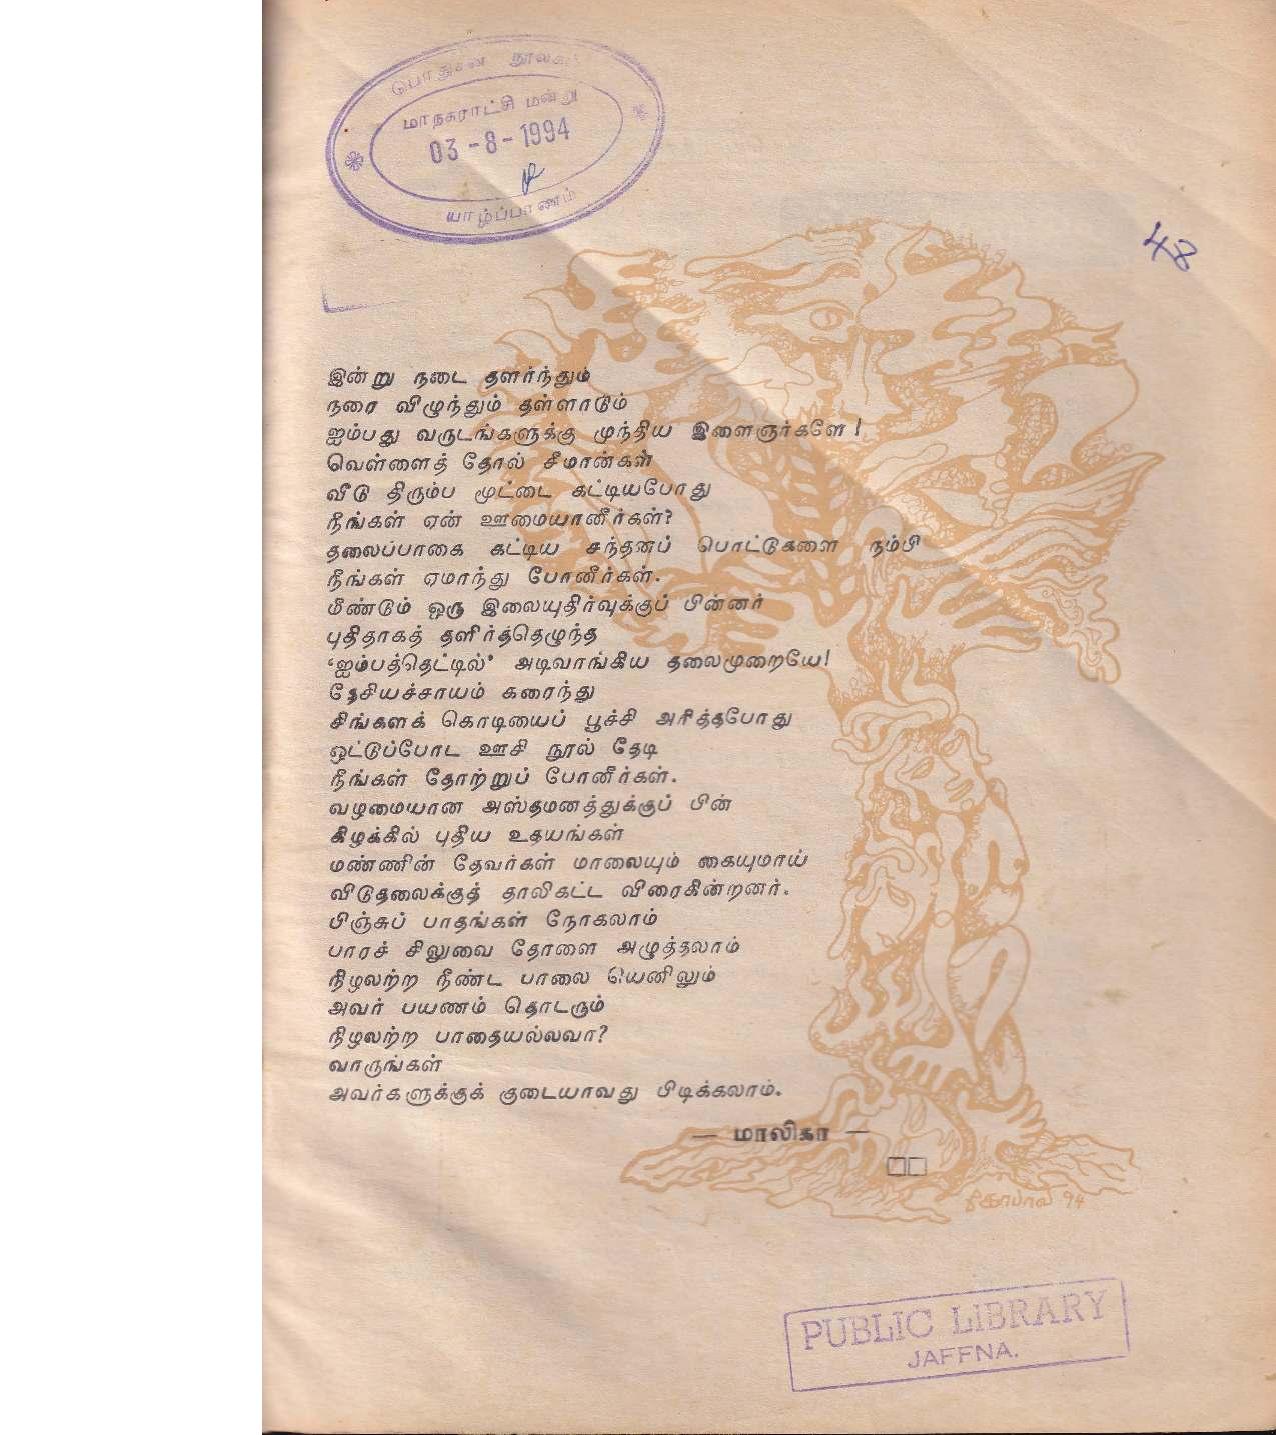 பொதுசன நூலகம்
மாநகராட்சி மன்று
03-8-1994
யாழ்ப்பாணம்
48
இன்று நடை தளர்ந்தும்
நரை விழுந்தும் தள்ளாடும்
ஐம்பது வருடங்களுக்கு முந்திய இளைஞர்களே!
வெள்ளைத் தோல் சீமான்கள்
வீடு திரும்ப மூட்டை கட்டியபோது
நீங்கள் ஏன் ஊமையானீர்கள்?
தலைப்பாகை கட்டிய சந்தனப் பொட்டுகளை நம்பி
நீங்கள் ஏமாந்து போனீர்கள்.
மீண்டும் ஒரு இலையுதிர்வுக்குப் பின்னர்
புதிதாகத் தளிர்த்தெழுந்த
‘ஐம்பத்தெட்டில்’ அடிவாங்கிய தலைமுறையே!
தேசியச்சாயம் கரைந்து
சிங்களக் கொடியைப் பூச்சி அரித்தபோது
ஒட்டுப்போட ஊசி நூல் தேடி
நீங்கள் தோற்றுப் போனீர்கள்.
வழமையான அஸ்தமனத்துக்குப் பின்
கிழக்கில் புதிய உதயங்கள்
மண்ணின் தேவர்கள் மாலையும் கையுமாய்
விடுதலைக்குத் தாலிகட்ட விரைகின்றனர்.
பிஞ்சுப் பாதங்கள் நோகலாம்
பாரச் சிலுவை தோளை அழுத்தலாம்
நிழலற்ற நீண்ட பாலை யெனிலும்
அவர் பயணம் தொடரும்
நிழலற்ற பாதையல்லவா?
வாருங்கள்
அவர்களுக்குக் குடையாவது பிடிக்கலாம்.
— மாலிகா —
94
PUBLIC LIBRARY
JAFFNA.